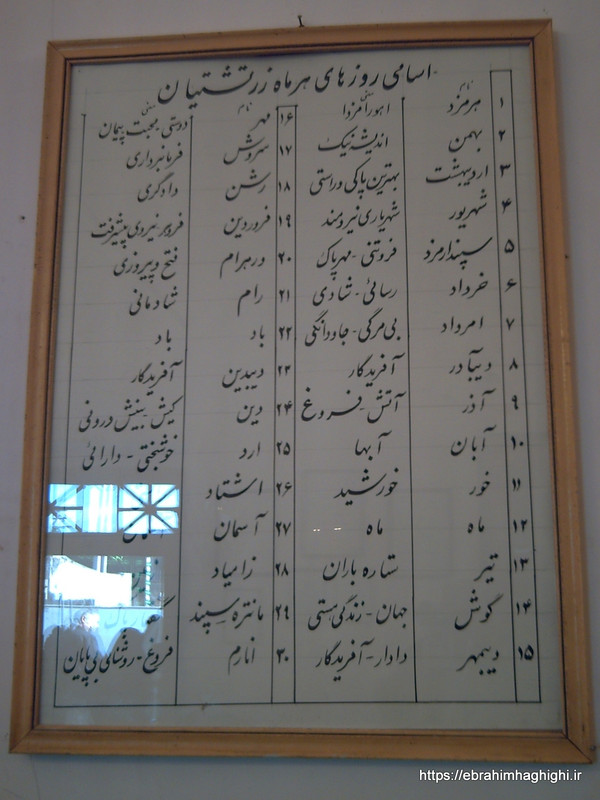 اسامی روزهای هر ماه زرتشتیان
نام معنی
۱ هرمزد اهورامزدا
۲ بهمن اندیشه نیک
۳ اردیبهشت بهترین پاکی و راستی
۴ شهریور شهریاری نیرومند
۵ سپندارمزد فروتنی - مهر پاک
۶ خرداد رسائی - شادی
۷ امرداد بی مرگی - جاودانگی
۸ دیبآذر آفریدگار
۹ آذر آتش - فروغ
۱۰ آبان آبها
۱۱ خور خورشید
۱۲ ماه ماه
۱۳ تیر ستاره باران
۱۴ گوش جهان - زندگی هستی
۱۵ دیبمهر دادار - آفریدگار
نام معنی
۱۶ مهر دوستی - محبت پیمان
۱۷ سروش فرمانبرداری
۱۸ رشن دادگری
۱۹ فروردین فروهر نیروی پیشرفت
۲۰ ورهرام فتح و پیروزی
۲۱ رام شادمانی
۲۲ باد باد
۲۳ دیبدین آفریدگار
۲۴ دین کیش - بینش درونی
۲۵ ارد خوشبختی - دارائی
۲۶ اشتاد
۲۷ آسمان
۲۸ زامیاد
۲۹ مانتره سپند
۳۰ انارم فروغ - روشنای بی پایان
https://ebrahimhaghighi.ir